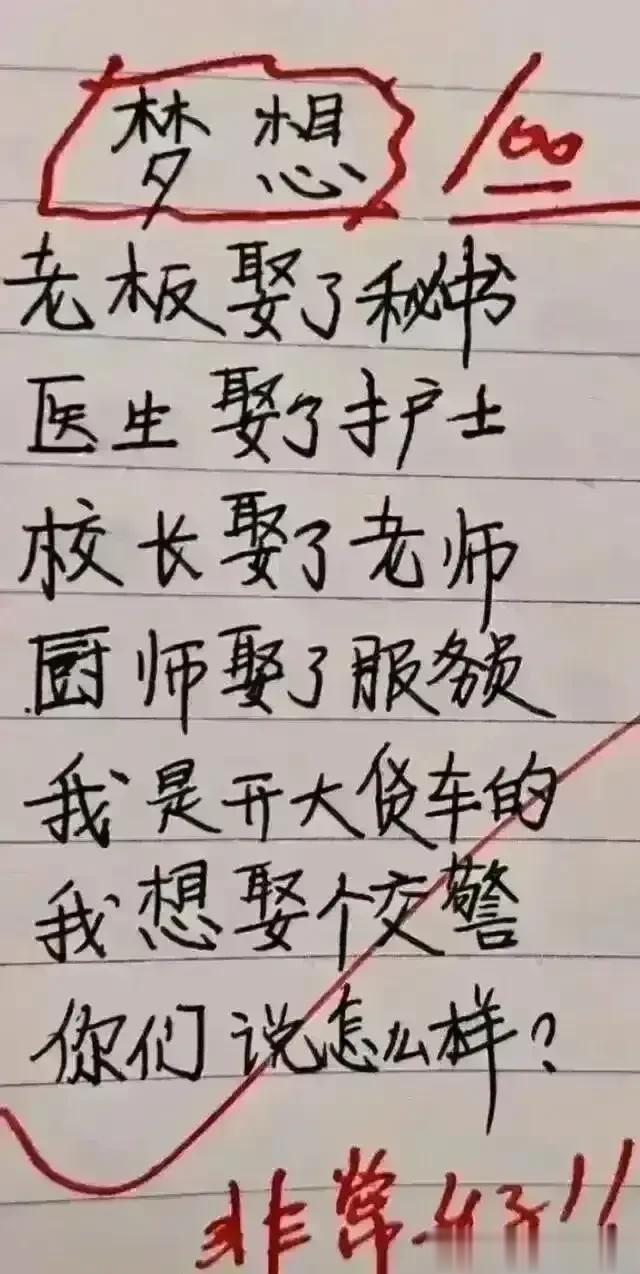 梦想 100
老板娶了秘书
医生娶了护士
校长娶了老师
厨师娶了服务员
我是开大货车的
我想娶个交警
你们说怎么样?
非常好!!